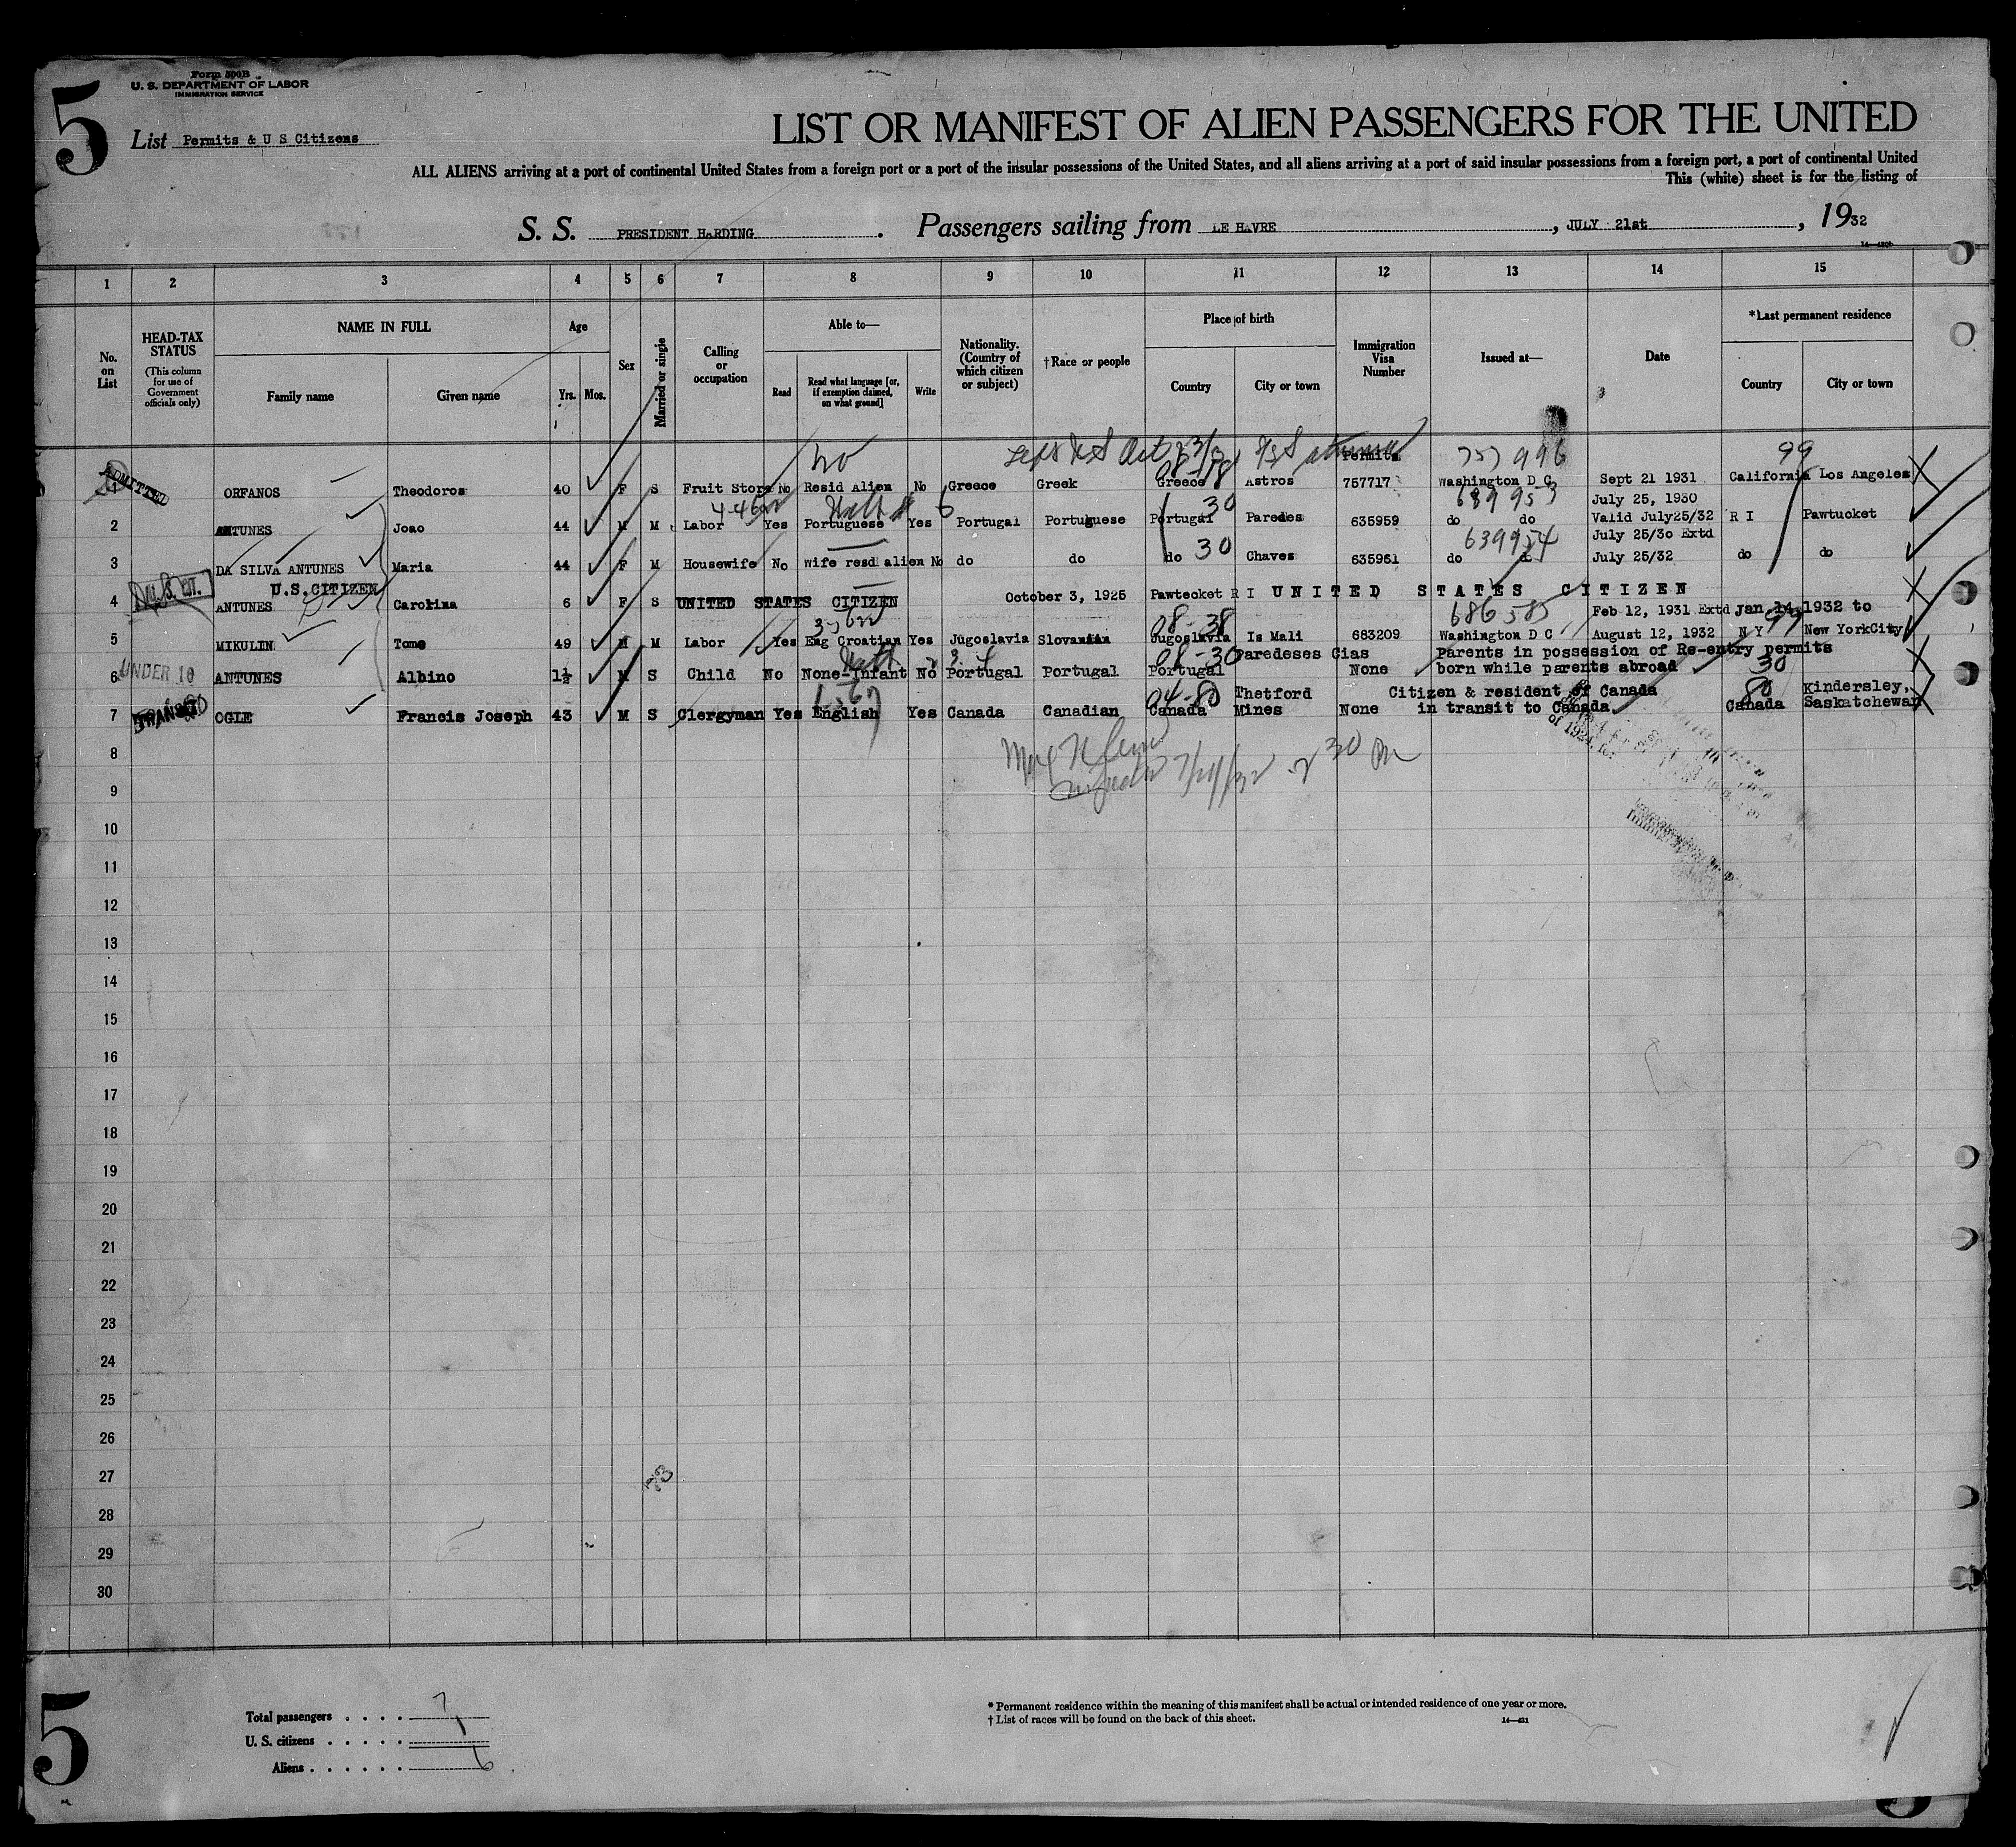 5
Form 500B
U. S. DEPARTMENT OF LABOR
IMMIGRATION SERVICE
List Permits & U S Citizens
LIST OR MANIFEST OF ALIEN PASSENGERS FOR THE UNITED
ALL ALIENS arriving at a port of continental United States from a foreign port or a port of the insular possessions of the United States, and all aliens arriving at a port of said insular possessions from a foreign port, a port of continental United
This (white) sheet is for the listing of
S. S. PRESIDENT HARDING . Passengers sailing from LE HAVRE , JULY 21st , 1932
1 2 3 4 5 6 7 8 9 10 11 12 13 14 15
No. on List
HEAD-TAX STATUS
(This column for use of Government officials only)
NAME IN FULL
Family name
Given name
Age
Yrs. Mos.
Sex
Married or single
Calling or occupation
Able to—
Read
Read what language [or, if exemption claimed, on what ground]
Write
Nationality. (Country of which citizen or subject)
†Race or people
Place of birth
Country
City or town
Immigration Visa Number
Issued at—
Date
*Last permanent residence
Country
City or town
no
Permits
757996
99
ADMITTED
1 ORFANOS Theodoros 40 F S Fruit Store No Resid Alien No Greece Greek Greece Astros 757717 Washington D C Sept 21 1931 California Los Angeles
30
689953
July 25, 1930
2 ANTUNES Joao 44 M M Labor Yes Portuguese Yes Portugal Portuguese Portugal Paredes 635959 do do Valid July25/32 R I Pawtucket
30
639954
July 25/30 Extd
3 DA SILVA ANTUNES Maria 44 F M Housewife No wife resd alien No do do do Chaves 635961 do do July 25/32 do do
U.S.CITIZEN
4 ANTUNES Carolina 6 F S UNITED STATES CITIZEN October 3, 1925 Pawtecket R I UNITED STATES CITIZEN
08-38
686585
99
Feb 12, 1931 Extd Jan 14 1932 to
5 MIKULIN Tome 49 M M Labor Yes Eng Croatian Yes Jugoslavia Slovanian Jugoslavia Is Mali 683209 Washington D C August 12, 1932 N Y New YorkCity
UNDER 16
Paredeses Cias
Parents in possession of Re-entry permits
30
6 ANTUNES Albino 1½ M S Child No None-Infant No Portugal Portugal Portugal None born while parents abroad
TRANSIT
04-80
80
Thetford
Citizen & resident of Canada
Kindersley,
7 OGLE Francis Joseph 43 M S Clergyman Yes English Yes Canada Canadian Canada Mines None in transit to Canada Canada Saskatchewan
of 1924
8
9
10
11
12
13
14
15
16
17
18
19
20
21
22
23
24
25
26
27
28
29
30
5
Total passengers . . . . 7
U. S. citizens . . . . . 1
Aliens . . . . . . 6
* Permanent residence within the meaning of this manifest shall be actual or intended residence of one year or more.
† List of races will be found on the back of this sheet.